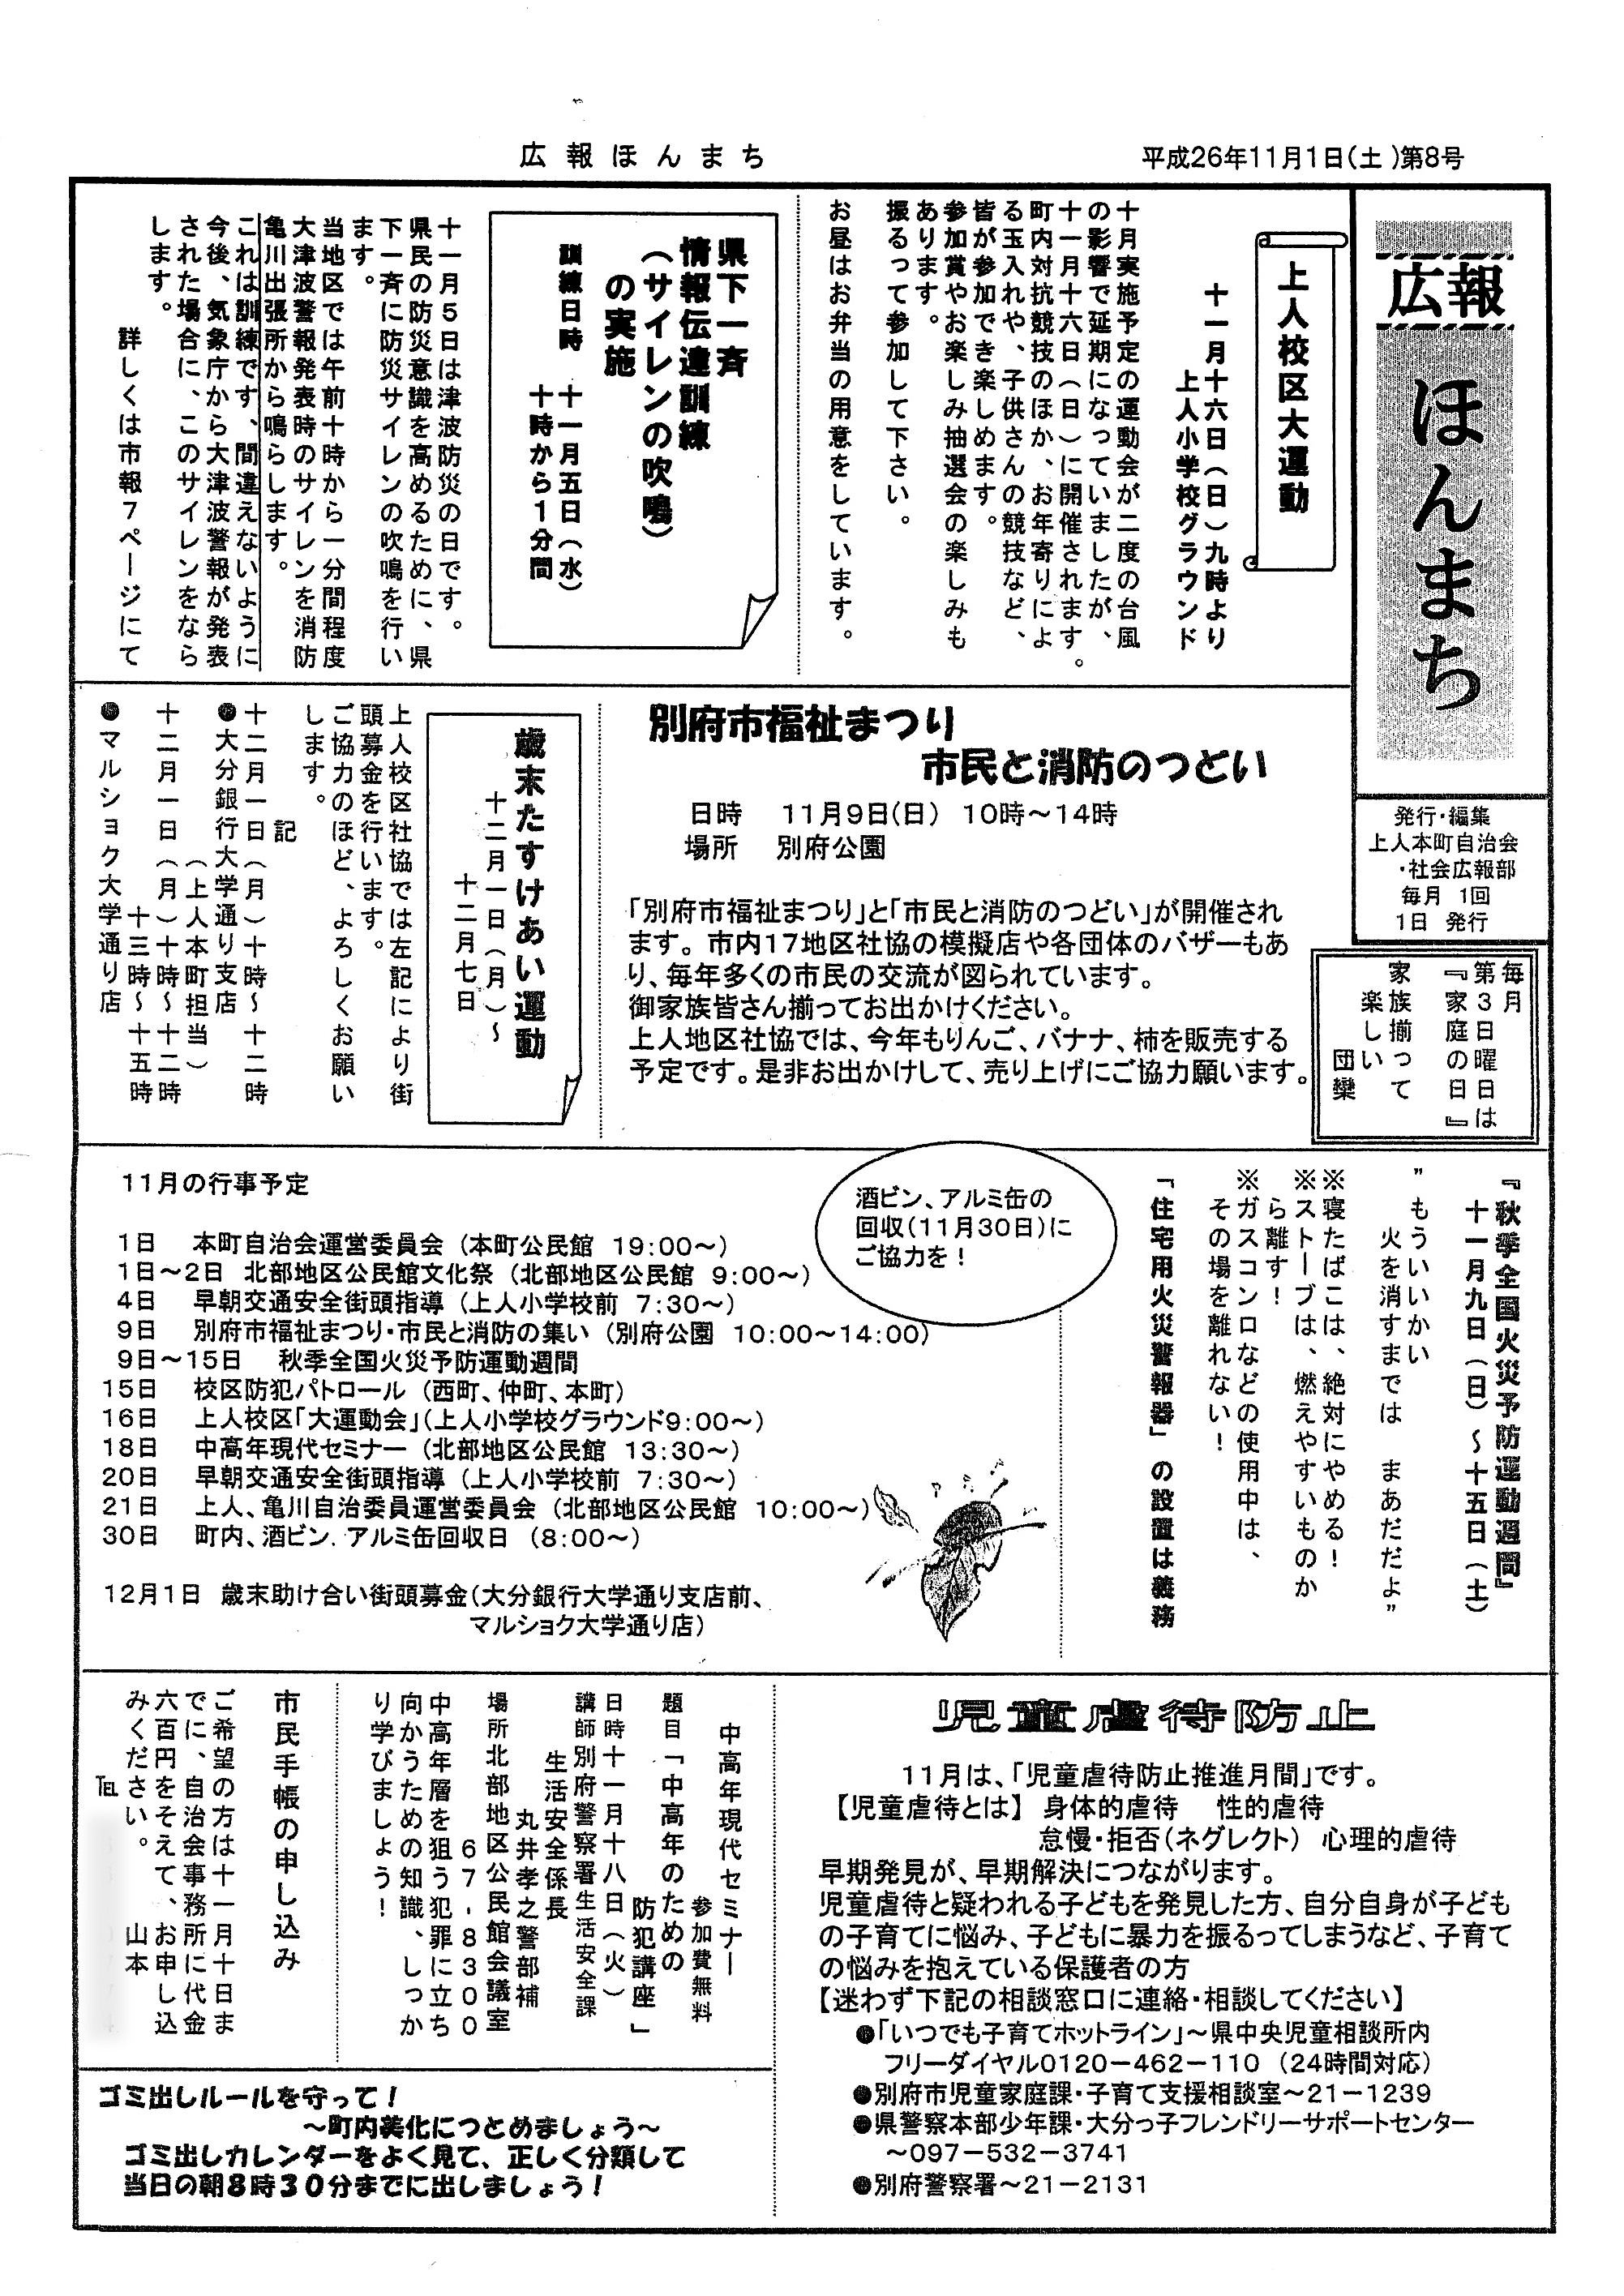 広報ほんまち
平成26年11月1日(土)第8号
広報
ほんまち
発行・編集
上人本町自治会
・社会広報部
毎月 1回
1日 発行
毎月
第3日曜日は
『家庭の日』
家族揃って
楽しい
団欒
上人校区大運動
十一月十六日(日)九時より
上人小学校グラウンド
十月実施予定の運動会が二度の台風
の影響で延期になっていましたが、
十一月十六日(日)に開催されます。
町内対抗競技のほか、お年寄りによ
る玉入れや、子供さんの競技など、
皆が参加でき楽しめます。
参加賞やお楽しみ抽選会の楽しみも
あります。
振るって参加して下さい。
お昼はお弁当の用意をしています。
県下一斉
情報伝達訓練
(サイレンの吹鳴)
の実施
訓練日時 十一月五日(水)
十時から1分間
十一月5日は津波防災の日です。
県民の防災意識を高めるために、県
下一斉に防災サイレンの吹鳴を行い
ます。
当地区では午前十時から一分間程度
大津波警報発表時のサイレンを消防
亀川出張所から鳴らします。
これは訓練です、間違えないように
今後、気象庁から大津波警報が発表
された場合に、このサイレンをなら
します。
詳しくは市報7ページにて
別府市福祉まつり
市民と消防のつどい
日時 11月9日(日) 10時～14時
場所 別府公園
「別府市福祉まつり」と「市民と消防のつどい」が開催され
ます。市内17地区社協の模擬店や各団体のバザーもあ
り、毎年多くの市民の交流が図られています。
御家族皆さん揃ってお出かけください。
上人地区社協では、今年もりんご、バナナ、柿を販売する
予定です。是非お出かけして、売り上げにご協力願います。
歳末たすけあい運動
十二月一日(月)～
十二月七日
上人校区社協では左記により街
頭募金を行います。
ご協力のほど、よろしくお願い
します。
記
十二月一日(月)十時～十二時
●大分銀行大学通り支店
(上人本町担当)
十二月一日(月)十時～十二時
十三時～十五時
●マルショク大学通り店
『秋季全国火災予防運動週間』
十一月九日(日)～十五日(土)
”もういいかい
火を消すまでは まあだだよ”
※寝たばこは、絶対にやめる!
※ストーブは、燃えやすいものか
ら離す!
※ガスコンロなどの使用中は、
その場を離れない!
「住宅用火災警報器」の設置は義務
酒ビン、アルミ缶の
回収(11月30日)に
ご協力を!
11月の行事予定
1日 本町自治会運営委員会 (本町公民館 19:00～)
1日～2日 北部地区公民館文化祭 (北部地区公民館 9:00～)
4日 早朝交通安全街頭指導 (上人小学校前 7:30～)
9日 別府市福祉まつり・市民と消防の集い (別府公園 10:00～14:00)
9日～15日 秋季全国火災予防運動週間
15日 校区防犯パトロール (西町、仲町、本町)
16日 上人校区「大運動会」(上人小学校グラウンド9:00～)
18日 中高年現代セミナー (北部地区公民館 13:30～)
20日 早朝交通安全街頭指導 (上人小学校前 7:30～)
21日 上人、亀川自治委員運営委員会 (北部地区公民館 10:00～)
30日 町内、酒ビン.アルミ缶回収日 (8:00～)
12月1日 歳末助け合い街頭募金(大分銀行大学通り支店前、
マルショク大学通り店)
児童虐待防止
11月は、「児童虐待防止推進月間」です。
【児童虐待とは】 身体的虐待 性的虐待
怠慢・拒否(ネグレクト) 心理的虐待
早期発見が、早期解決につながります。
児童虐待と疑われる子どもを発見した方、自分自身が子ども
の子育てに悩み、子どもに暴力を振るってしまうなど、子育て
の悩みを抱えている保護者の方
【迷わず下記の相談窓口に連絡・相談してください】
●「いつでも子育てホットライン」～県中央児童相談所内
フリーダイヤル0120－462－110 (24時間対応)
●別府市児童家庭課・子育て支援相談室～21－1239
●県警察本部少年課・大分っ子フレンドリーサポートセンター
～097－532－3741
●別府警察署～21－2131
中高年現代セミナー
参加費無料
題目「中高年のための
防犯講座」
日時十一月十八日(火)
講師別府警察署生活安全課
生活安全係長
丸井孝之警部補
場所北部地区公民館会議室
67-8300
中高年層を狙う犯罪に立ち
向かうための知識、しっか
り学びましょう!
市民手帳の申し込み
ご希望の方は十一月十日ま
でに、自治会事務所に代金
六百円をそえて、お申し込
みください。 山本
℡
ゴミ出しルールを守って!
～町内美化につとめましょう～
ゴミ出しカレンダーをよく見て、正しく分類して
当日の朝8時30分までに出しましょう!